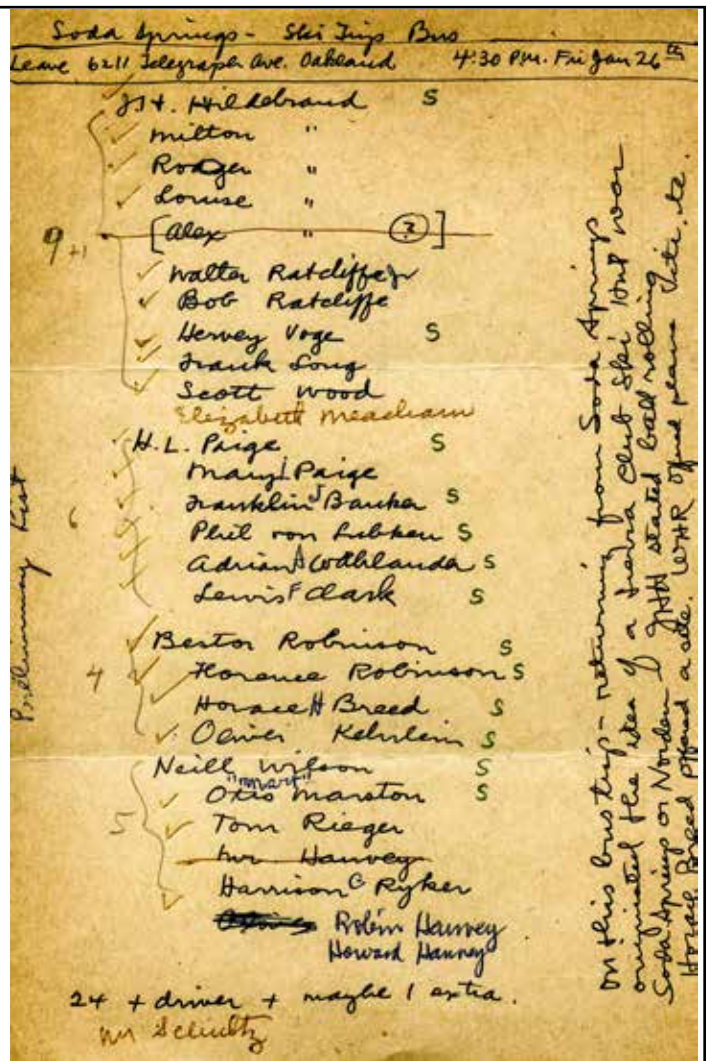 Soda Springs - Ski Trip Bus
Leave 6211 Telegraph Ave. Oakland 4:30 P.M. Fri Jan 26th
J H. Hildebrand S
Milton "
Roger "
Louise "
9 +1 [Alex " ?]
Walter Ratcliffe Jr
Bob Ratcliffe
Hervey Voge S
Frank Long
Scott Wood
Elizabeth Meacham
H. L. Paige S
Mary L Paige
6 Franklin J Banker S
Phil von Lubken S
Adrian A S
Lewis F Clark S
Bestor Robinson S
4 Florence Robinson S
Horace H Breed S
Oliver Kehrlein S
Neill Wilson S
"Mart"
Otis Marston S
5 Tom Rieger
Mr Hanvey
Harrison C Ryker
Robin Hanvey
Howard Hanvey
24 + driver + maybe 1 extra.
Mr Schultz
Preliminary List
On this bus trip - returning from Soda Springs
originated the idea of a Sierra Club Ski Hut near
Soda Springs or Norden JHH started ball rolling
Horace Breed offered a site. WHR plans etc.